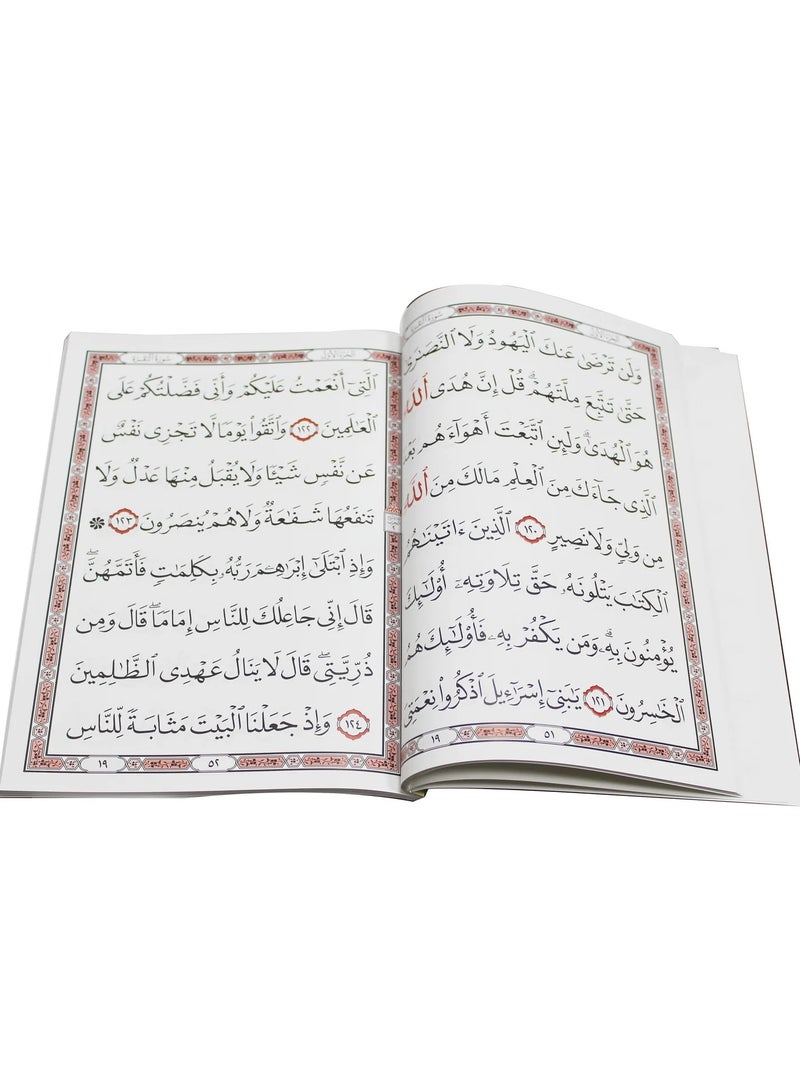 الجزء الأول سورة البقرة
وَلَن تَرْضَىٰ عَنكَ ٱلْيَهُودُ وَلَا ٱلنَّصَٰرَىٰ
حَتَّىٰ تَتَّبِعَ مِلَّتَهُمْ ۗ قُلْ إِنَّ هُدَى ٱللَّهِ
هُوَ ٱلْهُدَىٰ ۗ وَلَئِنِ ٱتَّبَعْتَ أَهْوَآءَهُم
ٱلَّذِى جَآءَكَ مِنَ ٱلْعِلْمِ مَا لَكَ مِنَ ٱللَّهِ
مِن وَلِىٍّ وَلَا نَصِيرٍ ١٢٠ ٱلَّذِينَ ءَاتَيْنَٰهُمُ
ٱلْكِتَٰبَ يَتْلُونَهُۥ حَقَّ تِلَاوَتِهِۦٓ أُو۟لَٰٓئِكَ
يُؤْمِنُونَ بِهِۦ ۗ وَمَن يَكْفُرْ بِهِۦ فَأُو۟لَٰٓئِكَ هُمُ
ٱلْخَٰسِرُونَ ١٢١ يَٰبَنِىٓ إِسْرَٰٓءِيلَ ٱذْكُرُوا۟ نِعْمَتِىَ
٥١ ١٩
الجزء الأول سورة البقرة
ٱلَّتِىٓ أَنْعَمْتُ عَلَيْكُمْ وَأَنِّى فَضَّلْتُكُمْ عَلَى
ٱلْعَٰلَمِينَ ١٢٢ وَٱتَّقُوا۟ يَوْمًا لَّا تَجْزِى نَفْسٌ
عَن نَّفْسٍ شَيْـًٔا وَلَا يُقْبَلُ مِنْهَا عَدْلٌ وَلَا
تَنفَعُهَا شَفَٰعَةٌ وَلَا هُمْ يُنصَرُونَ ١٢٣
وَإِذِ ٱبْتَلَىٰٓ إِبْرَٰهِۦمَ رَبُّهُۥ بِكَلِمَٰتٍ فَأَتَمَّهُنَّ ۖ
قَالَ إِنِّى جَاعِلُكَ لِلنَّاسِ إِمَامًا ۖ قَالَ وَمِن
ذُرِّيَّتِى ۖ قَالَ لَا يَنَالُ عَهْدِى ٱلظَّٰلِمِينَ
١٢٤ وَإِذْ جَعَلْنَا ٱلْبَيْتَ مَثَابَةً لِّلنَّاسِ
٥٢ ١٩